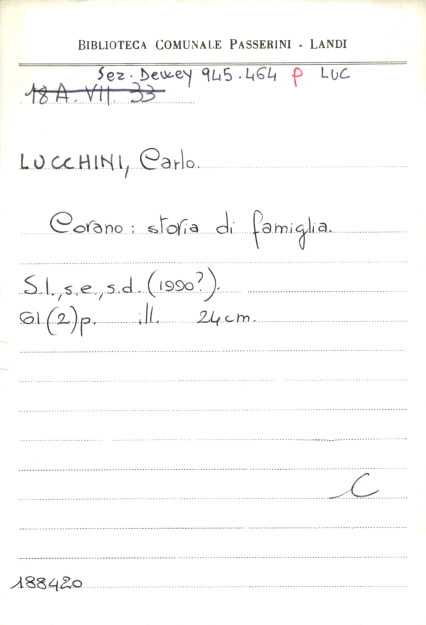 BIBLIOTECA COMUNALE PASSERINI - LANDI
Sez. Dewey 945.464 P LUC
18 A. VII. 33
LUCCHINI, Carlo.
Corano: storia di famiglia.
S.l., s.e., s.d. (1990?).
61 (2) p. ill. 24 cm.
C
188420